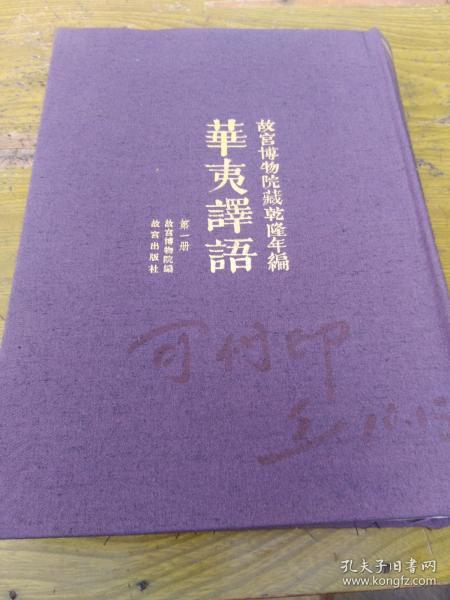 故宮博物院藏乾隆年編
華夷譯語
第一册
故宮博物院編
故宮出版社
可付印
孔夫子旧书网
www.kongfz.com